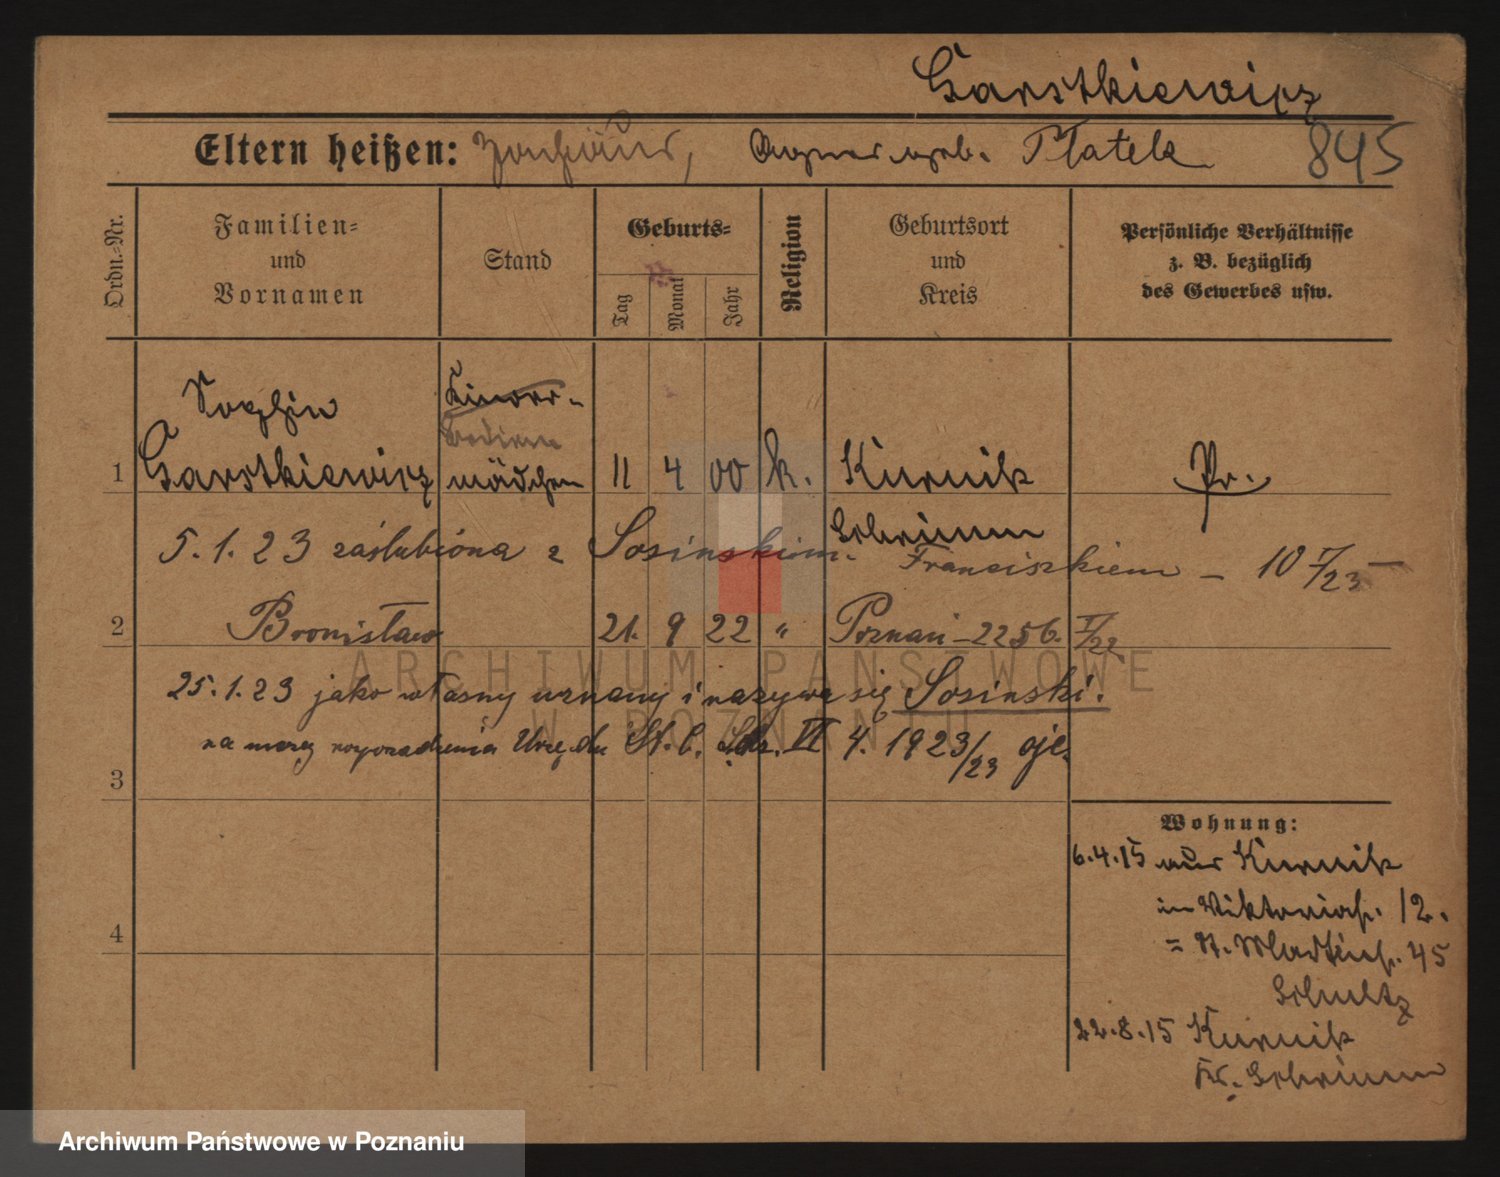 Garstkiewicz
Eltern heißen: Agnes geb. Płatek 845
Ordn.=Nr.
Familien=
und
Vornamen
Stand
Geburts=
Tag
Monat
Jahr
Religion
Geburtsort
und
Kreis
Persönliche Verhältnisse
z. B. bezüglich
des Gewerbes usw.
Sophie Kinder-
1 Garstkiewicz mädchen 11 4 00 k. Kurnik Pr.
Schrimm
5.1.23 zaślubiona z Sosinskim Franciszkiem – 10 7/23
2 Bronisław 21. 9 22 " Poznań – 2256. V/22
25.1.23 jako własny uznany i nazywa się Sosinski.
na mocy rozporządzenia Urzędu St. C. VI 4. 1923/23
3
4
Wohnung:
6.4.15 aus Kurnik
in Viktoriastr. 12.
= St. Martinstr. 45
Schultz
22.8.15 Kurnik
Kr. Schrimm
ARCHIWUM PAŃSTWOWE
W POZNANIU
Archiwum Państwowe w Poznaniu